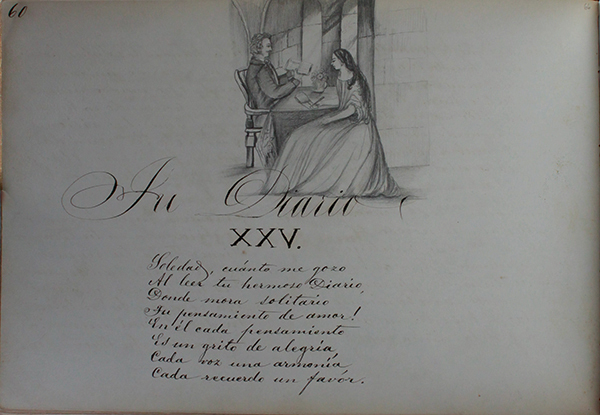 60
Tu Diario
XXV.
Soledad, cuánto me gozo
Al leer tu hermoso Diario,
Donde mora solitario
Tu pensamiento de amor!
En él cada pensamiento
Es un grito de alegría,
Cada voz una armonía,
Cada recuerdo un favór.